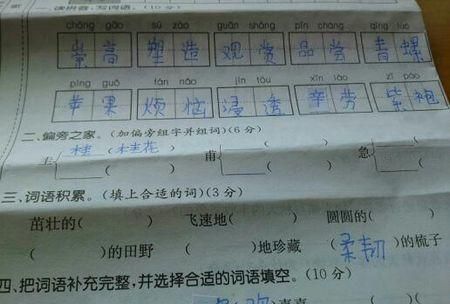 一、读拼音,写词语。(10分)
chóng gāo sù zào guān shǎng pǐn cháng qīng luó
崇高 塑造 观赏 品尝 青螺
píng guǒ fán nǎo jìn tòu xīn láo zǐ páo
苹果 烦恼 浸透 辛劳 紫袍
二、偏旁之家。(加偏旁组字并组词)(6分)
桂(桂花) ( ) (
圭 甫 急
( ) ( ) (
三、词语积累。(填上合适的词)(3分)
茁壮的( ) 飞速地( ) 圆圆的( )
( )的田野 ( )地珍藏 (柔韧)的梳子
四、把词语补充完整,并选择合适的词语填空。(10分)